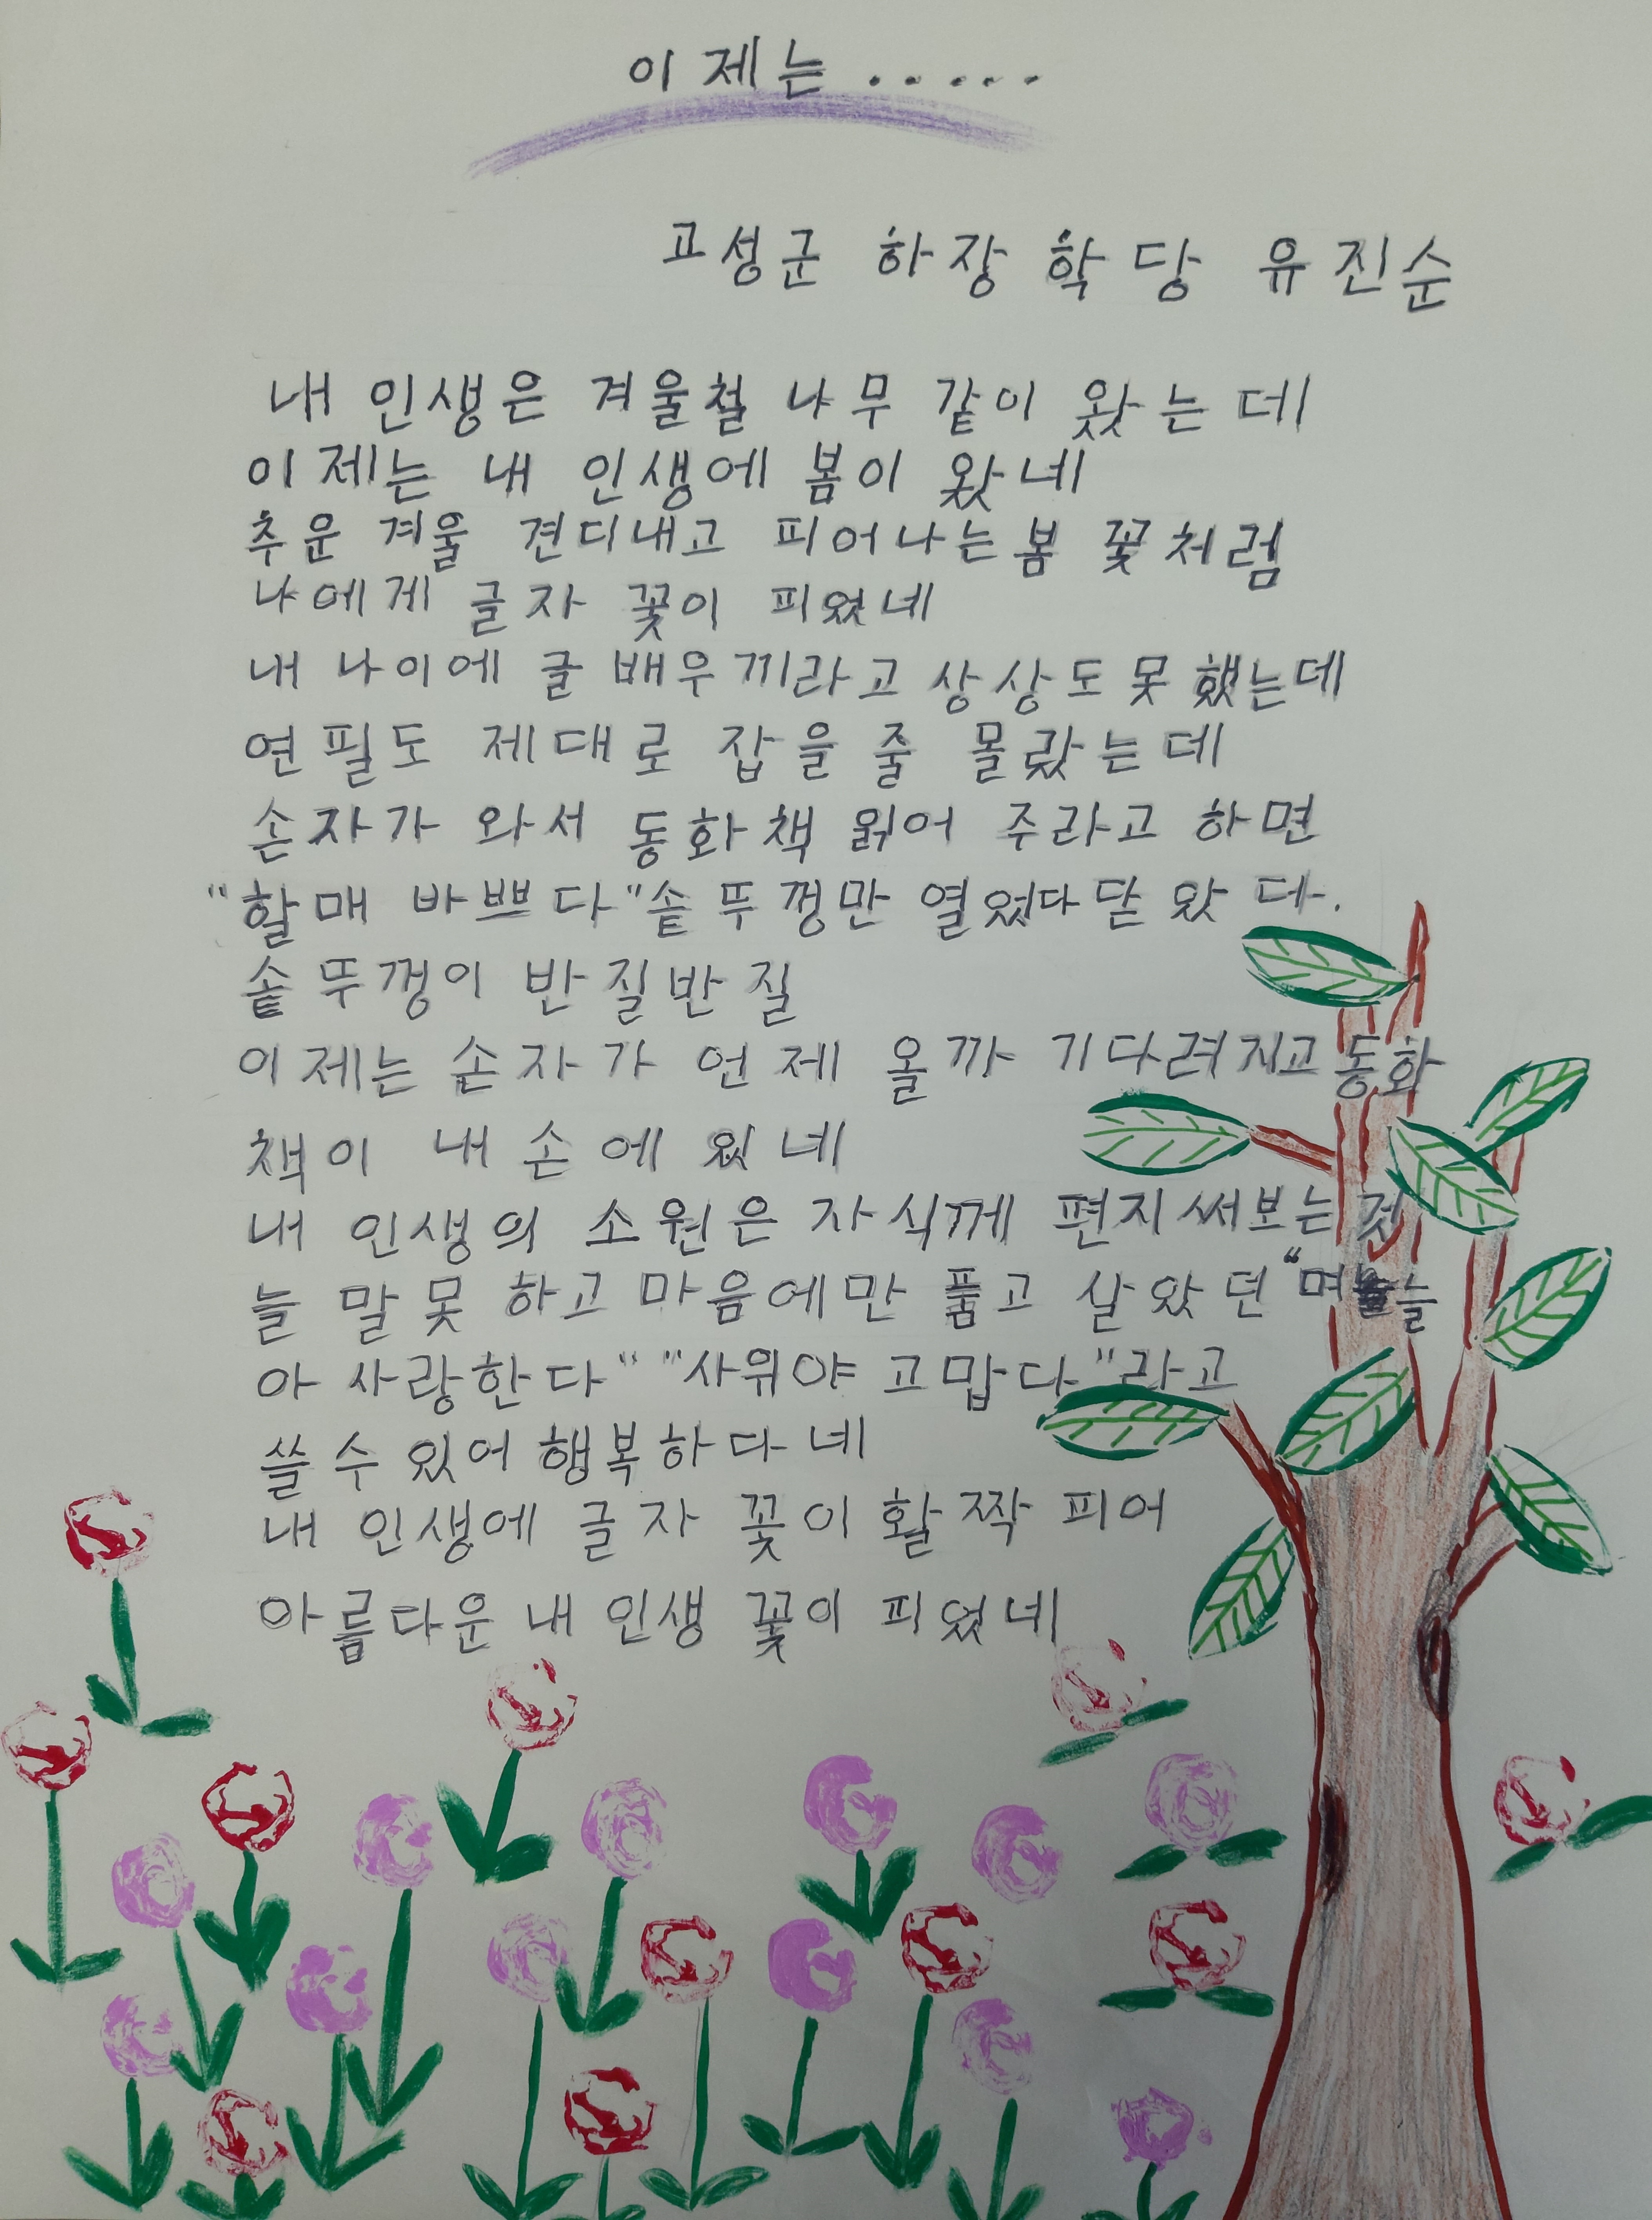 이제는 .....
고성군 하장 학당 유진순
내 인생은 겨울철 나무 같이 왔는데
이제는 내 인생에 봄이 왔네
추운 겨울 견디내고 피어나는 봄 꽃처럼
나에게 글자 꽃이 피었네
내 나이에 글 배우끼라고 상상도 못 했는데
연필도 제대로 잡을 줄 몰랐는데
손자가 와서 동화책 읽어 주라고 하면
"할매 바쁘다" 솥뚜껑만 열었다 닫았다.
솥뚜껑이 반질반질
이제는 손자가 언제 올까 기다려지고 동화
책이 내 손에 있네
내 인생의 소원은 자식께 편지 써보는 것
늘 말 못 하고 마음에만 품고 살았던 "며늘
아 사랑한다" "사위야 고맙다"라고
쓸 수 있어 행복하다네
내 인생에 글자 꽃이 활짝 피어
아름다운 내 인생 꽃이 피었네